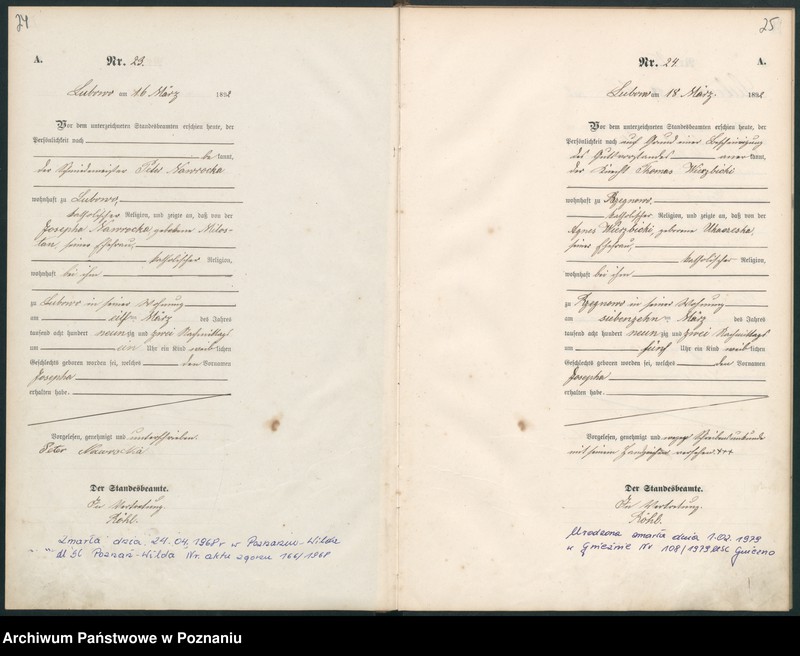 24
A.
Nr. 23.
Lubowo am 16 März 1892
Vor dem unterzeichneten Standesbeamten erschien heute, der
Persönlichkeit nach
be kannt,
der Schneidemeister Peter Nawrocka
wohnhaft zu Lubowo,
katholischer Religion, und zeigte an, daß von der
Josepha Nawrocka, geborene Milos-
tan, seiner Ehefrau,
katholischer Religion,
wohnhaft bei ihm
zu Lubowo in seiner Wohnung
am elf März des Jahres
tausend acht hundert neun zig und zwei Nachmittags
um ein Uhr ein Kind weib lichen
Geschlechts geboren worden sei, welches den Vornamen
Josepha
erhalten habe.
Vorgelesen, genehmigt und unterschrieben
Peter Nawrocka
Der Standesbeamte.
In Vertretung.
Röhl.
Zmarła dnia 24.04.1968r w Poznaniu-Wilda
Poznań-Wilda Nr. aktu zgonu 166/1968
25
Nr. 24
A.
Lubowo am 18. März. 1892
Vor dem unterzeichneten Standesbeamten erschien heute, der
Persönlichkeit nach auf Grund einer Bescheinigung
des Gutsvorstandes aner kannt,
der Knecht Thomas Wierzbicki
wohnhaft zu Rzegnowo,
katholischer Religion, und zeigte an, daß von der
Agnes Wierzbicki, geborene
seiner Ehefrau,
katholischer Religion,
wohnhaft bei ihm
zu Rzegnowo in seiner Wohnung
am siebenzehn März des Jahres
tausend acht hundert neun zig und zwei Nachmittags
um fünf Uhr ein Kind weib lichen
Geschlechts geboren worden sei, welches den Vornamen
Josepha
erhalten habe.
Vorgelesen, genehmigt und wegen Schreibensunkunde
mit seinem Handzeichen versehen. +++
Der Standesbeamte.
In Vertretung.
Röhl.
Urodzona zmarła dnia 1.02.1979
w Gnieźnie Nr 108/1979 USC Gniezno
Archiwum Państwowe w Poznaniu